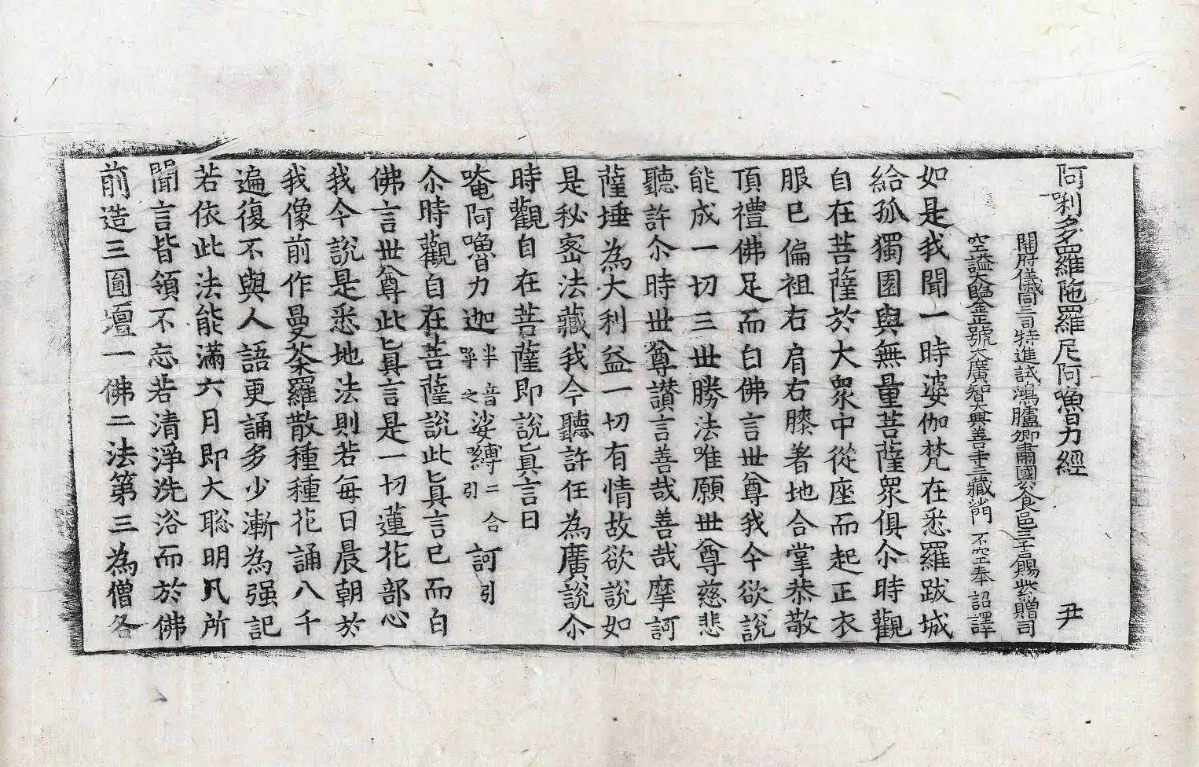 阿唎多羅陁羅尼阿嚕力經 尹
開府儀同三司特進試鴻臚卿肅國公食邑三千户賜紫贈司
空謚大鑒正號大廣智大興善寺三藏沙門不空奉 詔譯
如是我聞一時婆伽梵在悉羅跋城
給孤獨園與無量菩薩衆俱尒時觀
自在菩薩於大衆中從座而起正衣
服已偏袒右肩右膝著地合掌恭敬
頂禮佛足而白佛言世尊我今欲說
能成一切三世勝法唯願世尊慈悲
聽許尒時世尊讃言善哉善哉摩訶
薩埵為大利益一切有情故欲說如
是秘密法藏我今聽許任為廣說尒
時觀自在菩薩即說真言曰
唵阿嚕力迦半音單之娑嚩二合引訶引
尒時觀自在菩薩說此真言已而白
佛言世尊此真言是一切蓮花部心
我今說是悉地法則若每日晨朝於
我像前作曼荼羅散種種花誦八千
遍復不與人語更誦多少漸為强記
若依此法能滿六月即大聡明凡所
聞言皆領不忘若清淨洗浴而於佛
前造三圓壇一佛二法第三為僧各